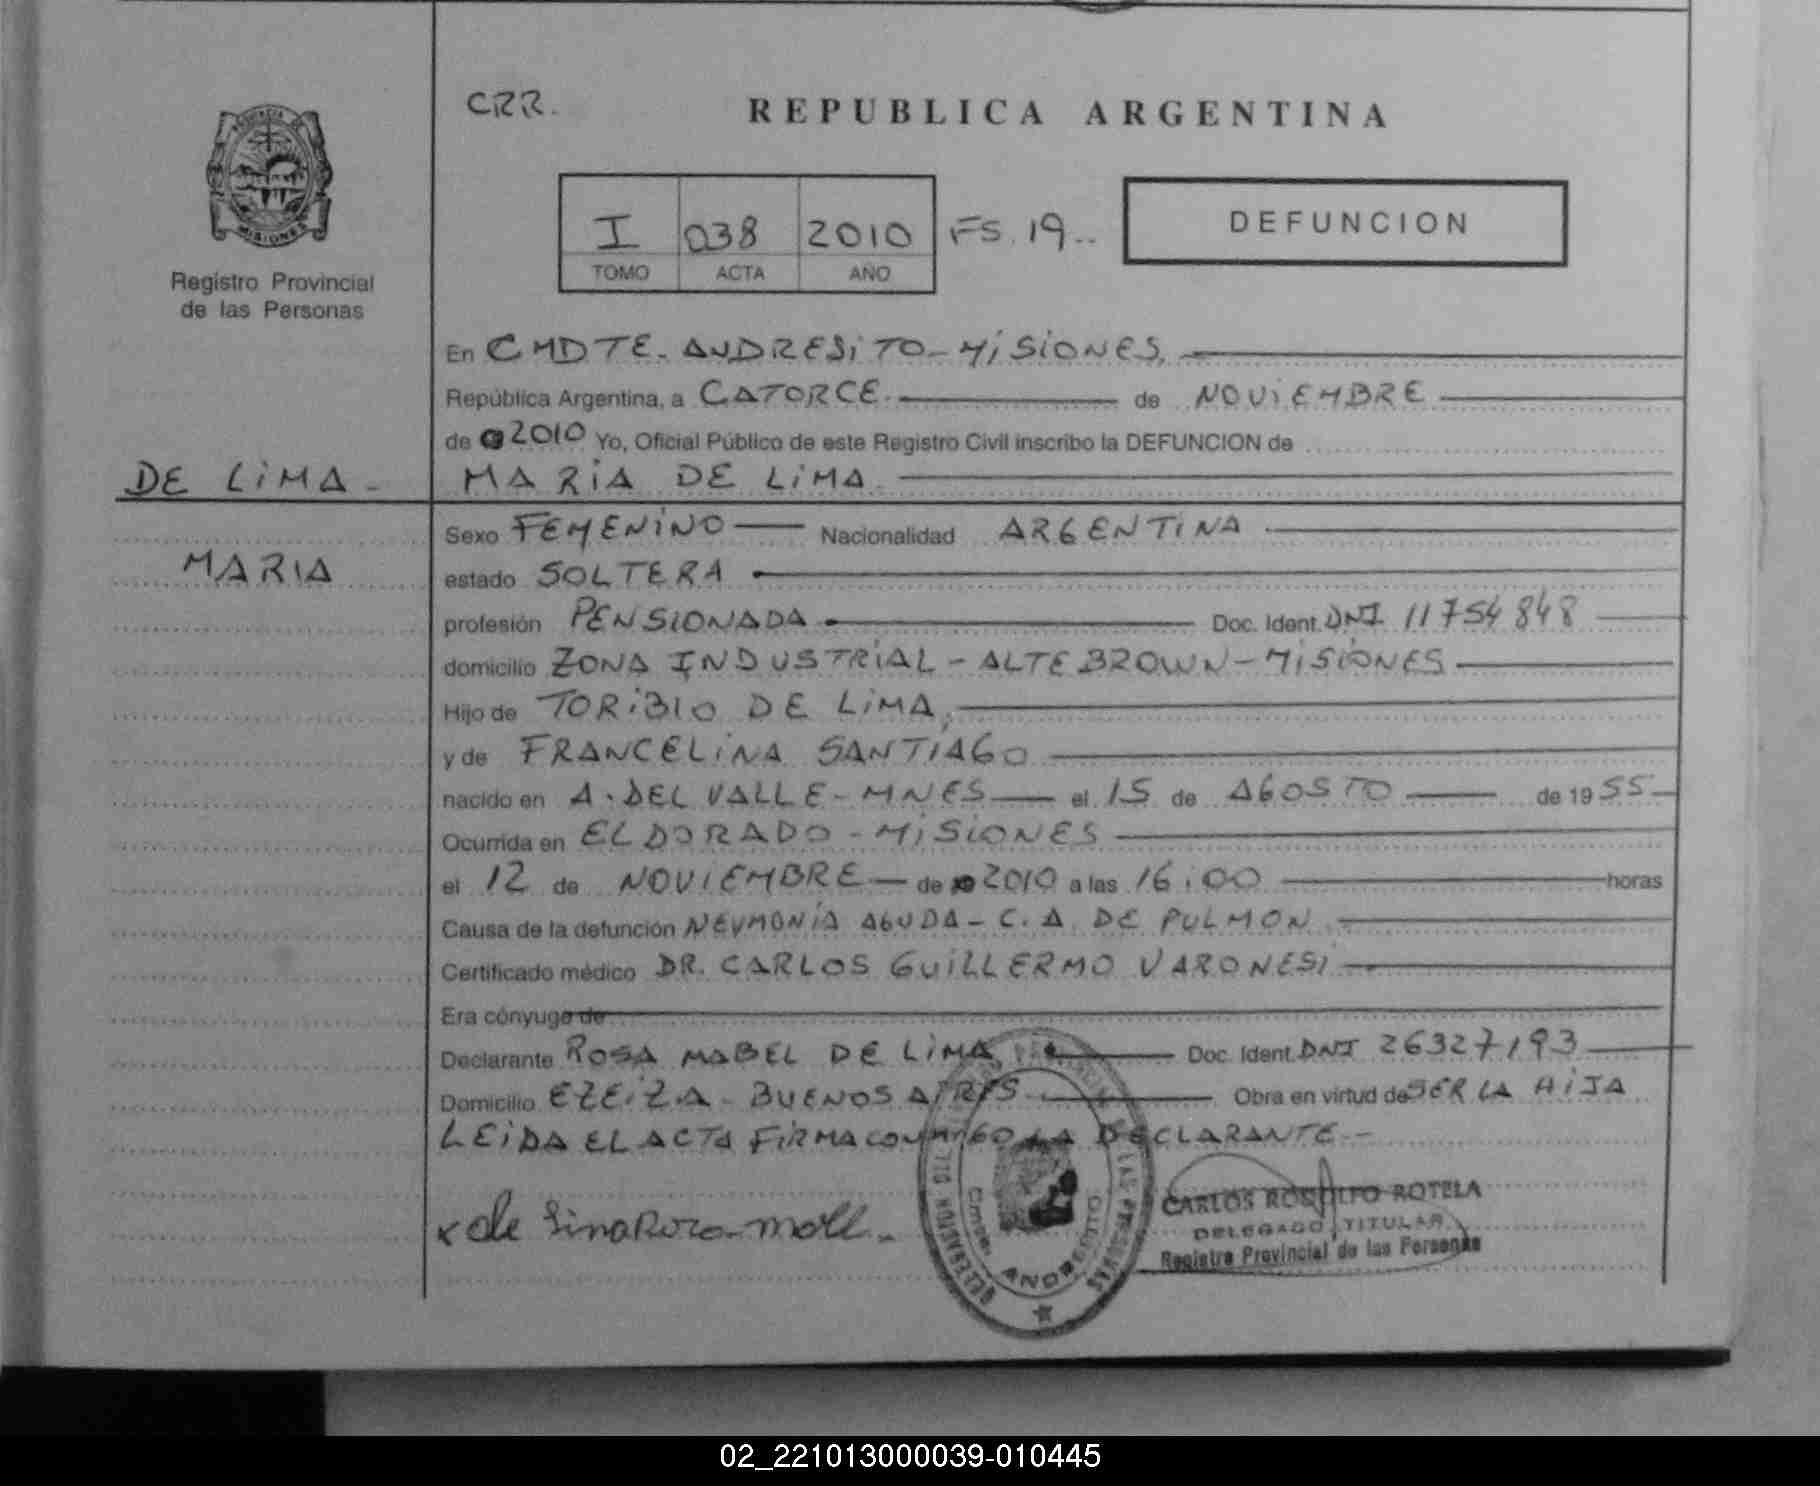 CRR.
REPUBLICA ARGENTINA
PROVINCIA DE
MISIONES
Registro Provincial
de las Personas
I 038 2010 FS. 19..
TOMO ACTA AÑO
DEFUNCION
En CMDTE. ANDRESITO - MISIONES,
República Argentina, a CATORCE. de NOVIEMBRE
de 2010 Yo, Oficial Público de este Registro Civil inscribo la DEFUNCION de
DE LIMA - MARIA DE LIMA.
Sexo FEMENINO Nacionalidad ARGENTINA
MARIA
estado SOLTERA
profesión PENSIONADA Doc. Ident. DNI 11754848
domicilio ZONA INDUSTRIAL - ALTE BROWN - MISIONES
Hijo de TORIBIO DE LIMA,
y de FRANCELINA SANTIAGO
nacido en A. DEL VALLE - MNES el 15 de AGOSTO de 1955
Ocurrida en ELDORADO - MISIONES
el 12 de NOVIEMBRE de 2010 a las 16:00 horas
Causa de la defunción NEUMONIA AGUDA - C. A. DE PULMON
Certificado médico DR. CARLOS GUILLERMO VARONESI
Era cónyuge de
Declarante ROSA MABEL DE LIMA Doc. Ident. DNI 26327193
Domicilio EZEIZA - BUENOS AIRES Obra en virtud de SER LA HIJA
LEIDA EL ACTA FIRMA CONMIGO LA DECLARANTE -
x de Lima
CARLOS RODOLFO ROTELA
DELEGADO TITULAR
Registro Provincial de las Personas
LAS PERSONAS
ANDRESITO
02_221013000039-010445